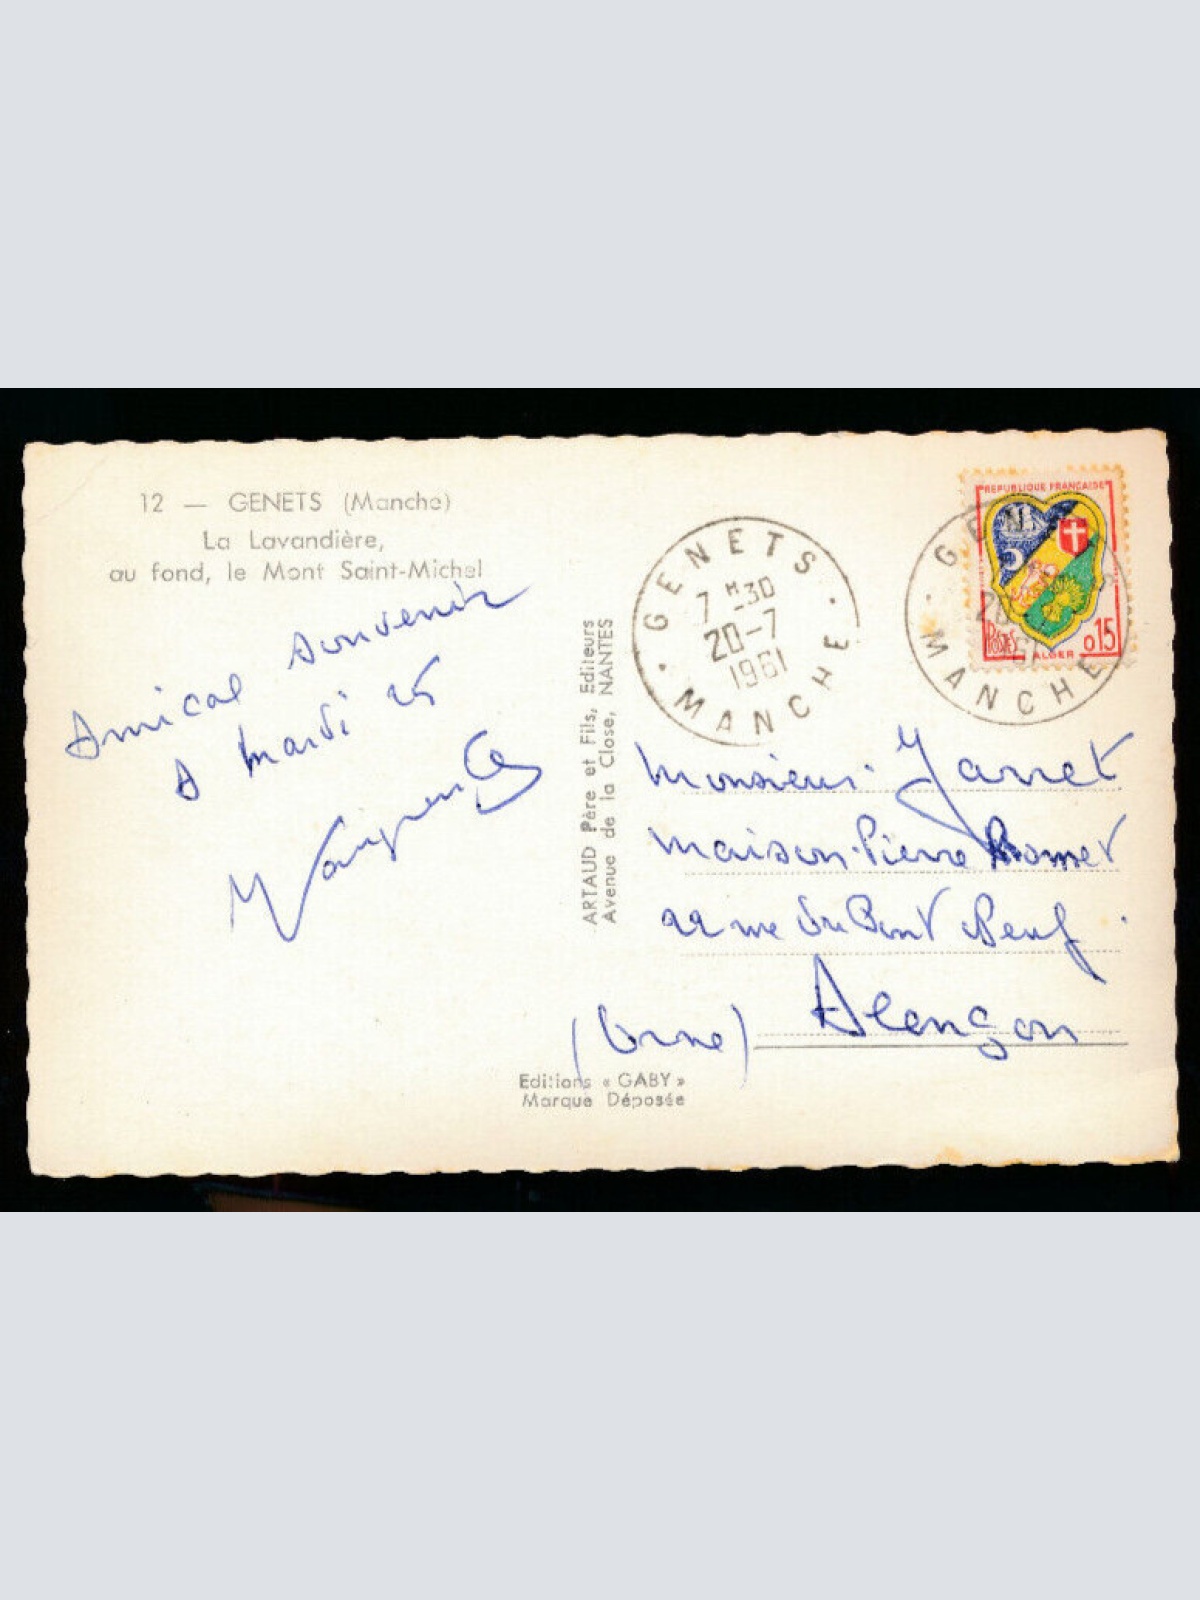 12 — GENETS (Manche)
La Lavandière,
au fond, le Mont Saint-Michel
Amical souvenir
A mardi 25
ARTAUD Père et Fils, Editeurs
Avenue de la Close, NANTES
GENETS
7 H 30
20-7
1961
MANCHE
REPUBLIQUE FRANÇAISE
POSTES
ALGER
0,15
GEN
20
MANCHE
Monsieur Jarret
maison Pierre
22 rue du Pont Neuf
Alençon
(Orne)
Editions « GABY »
Marque Déposée